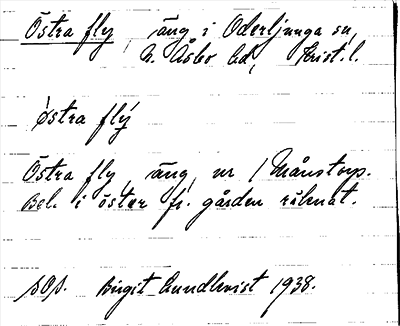 Östra fly, äng i Oderljunga sn,
N. Åsbo hd, Krist. l.
østra flý
Östra fly, äng, nr 1 Månstorp.
Bel. i öster fr. gården räknat.
sOp. Birgit Lundkvist 1938.